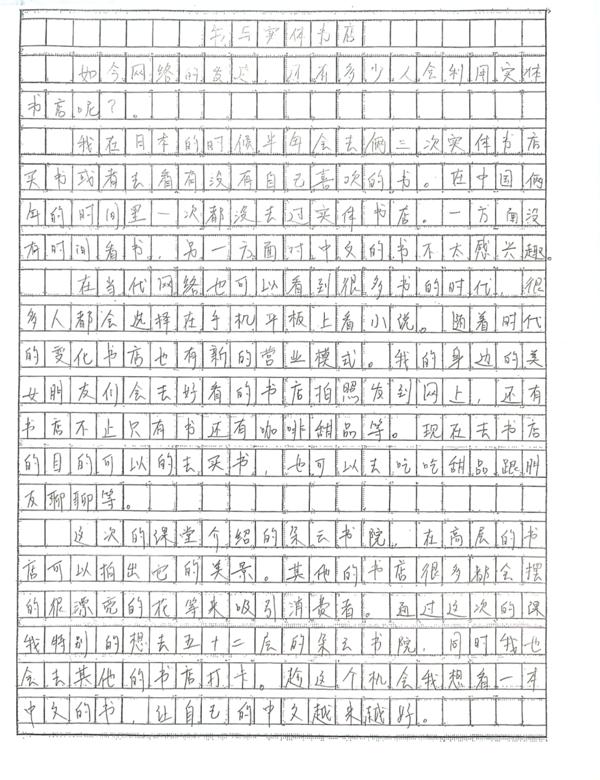 我与实体书店
如今网络的发达,还有多少人会利用实体
书店呢?。
我在日本的时候半年会去俩三次实体书店
买书或者去看有没有自己喜欢的书。在中国俩
年的时间里一次都没去过实体书店。一方面没
有时间看书,另一方面对中文的书不太感兴趣。
在当代网络也可以看到很多书的时代,很
多人都会选择在手机平板上看小说。随着时代
的变化书店也有新的营业模式。我的身边的美
女朋友们会去好看的书店拍照发到网上,还有
书店不止只有书还有咖啡甜品等。现在去书店
的目的可以的去买书,也可以去吃吃甜品跟朋
友聊聊等。
这次的课堂介绍的朵云书院,在高层的书
店可以拍出也的美景。其他的书店很多都会摆
的很漂亮的花等来吸引消费者。通过这次的课
我特别的想去五十二层的朵云书院,同时我也
会去其他的书店打卡。趁这个机会我想看一本
中文的书,让自己的中文越来越好。